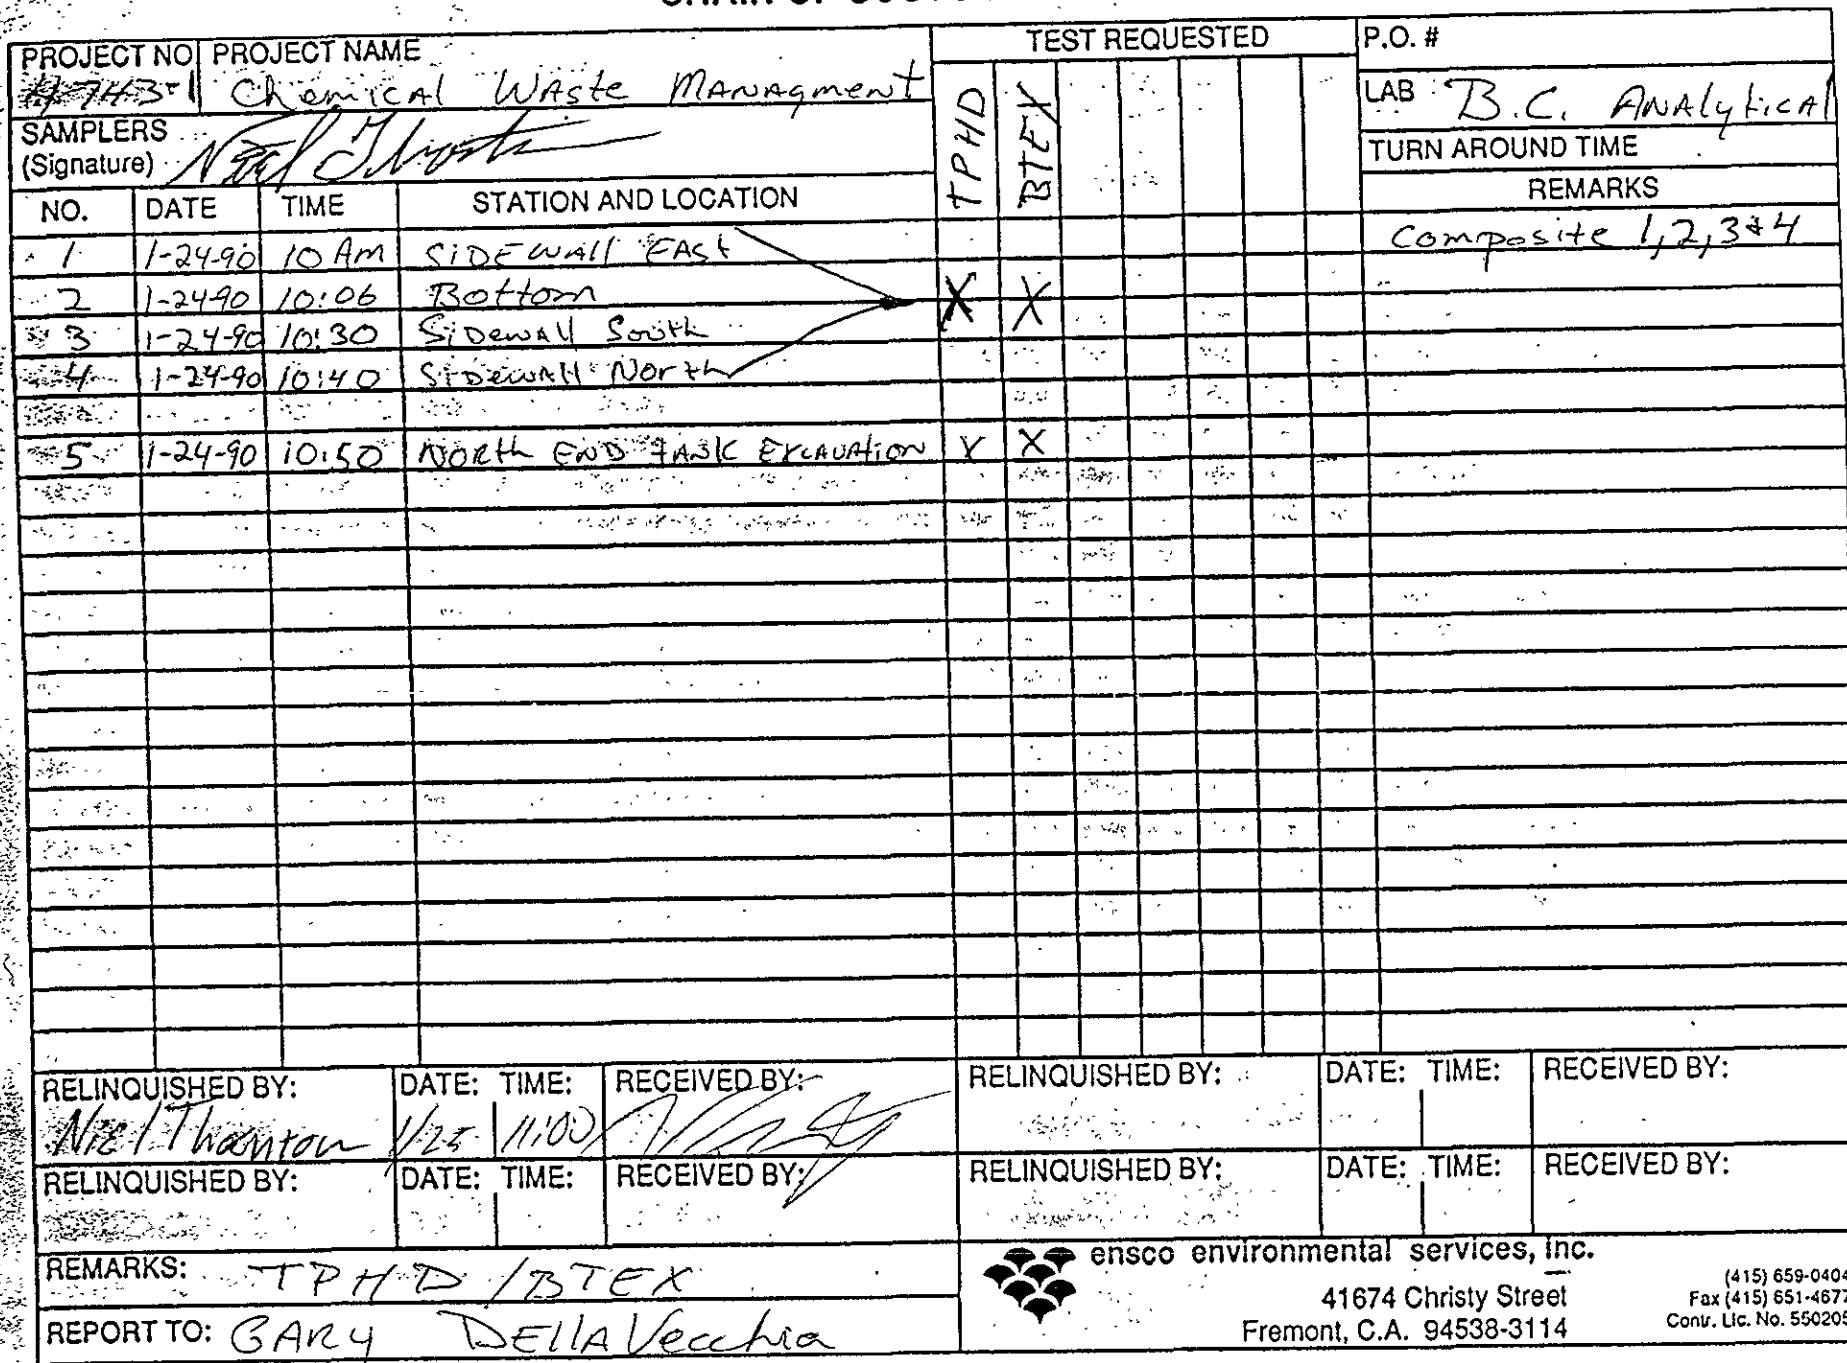 PROJECT NO PROJECT NAME
Chemical Waste Managment
SAMPLERS
(Signature)
TEST REQUESTED
TPHD BTEX
P.O. #
LAB B.C. Analytical
TURN AROUND TIME
NO. DATE TIME STATION AND LOCATION REMARKS
1 1-24-90 10 AM SIDEWALL EAST Composite 1,2,3&4
2 1-24-90 10:06 Bottom X X
3 1-24-90 10:30 Sidewall South
4 1-24-90 10:40 Sidewall North
5 1-24-90 10:50 North End Tank Excavation X X
RELINQUISHED BY: DATE: TIME: RECEIVED BY: RELINQUISHED BY: DATE: TIME: RECEIVED BY:
1/25 11:00
RELINQUISHED BY: DATE: TIME: RECEIVED BY: RELINQUISHED BY: DATE: TIME: RECEIVED BY:
REMARKS: TPHD / BTEX
REPORT TO: GARY DELLA Vecchia
ensco environmental services, inc.
41674 Christy Street
Fremont, C.A. 94538-3114
(415) 659-0404
Fax (415) 651-4677
Contr. Lic. No. 550205